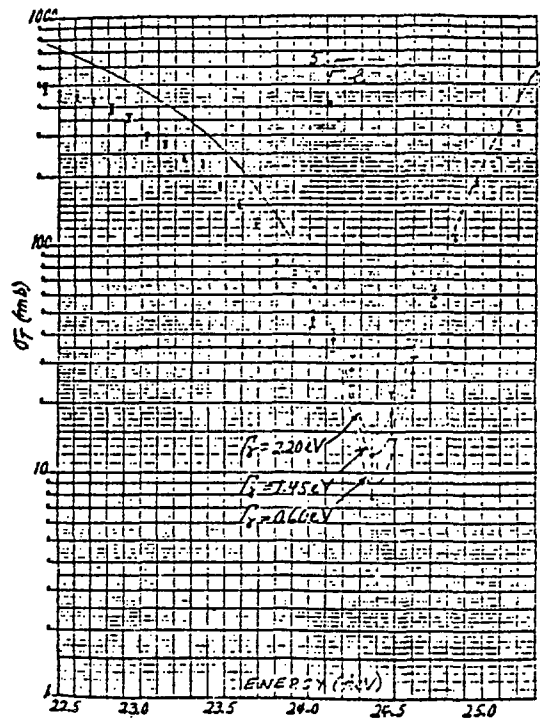 1000
100
σT (mb)
Γγ = 2.20 eV
Γγ = 1.45 eV
10
Γγ = 0.60 eV
1
ENERGY (keV)
22.5 23.0 23.5 24.0 24.5 25.0